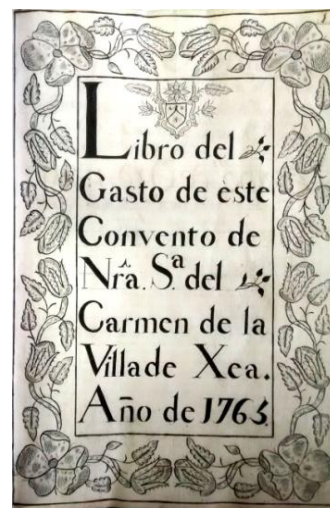 Libro del
Gasto de èste
Convento de
Nrâ. Sª. del
Carmen de la
Villa de Xea.
Año de 1765.